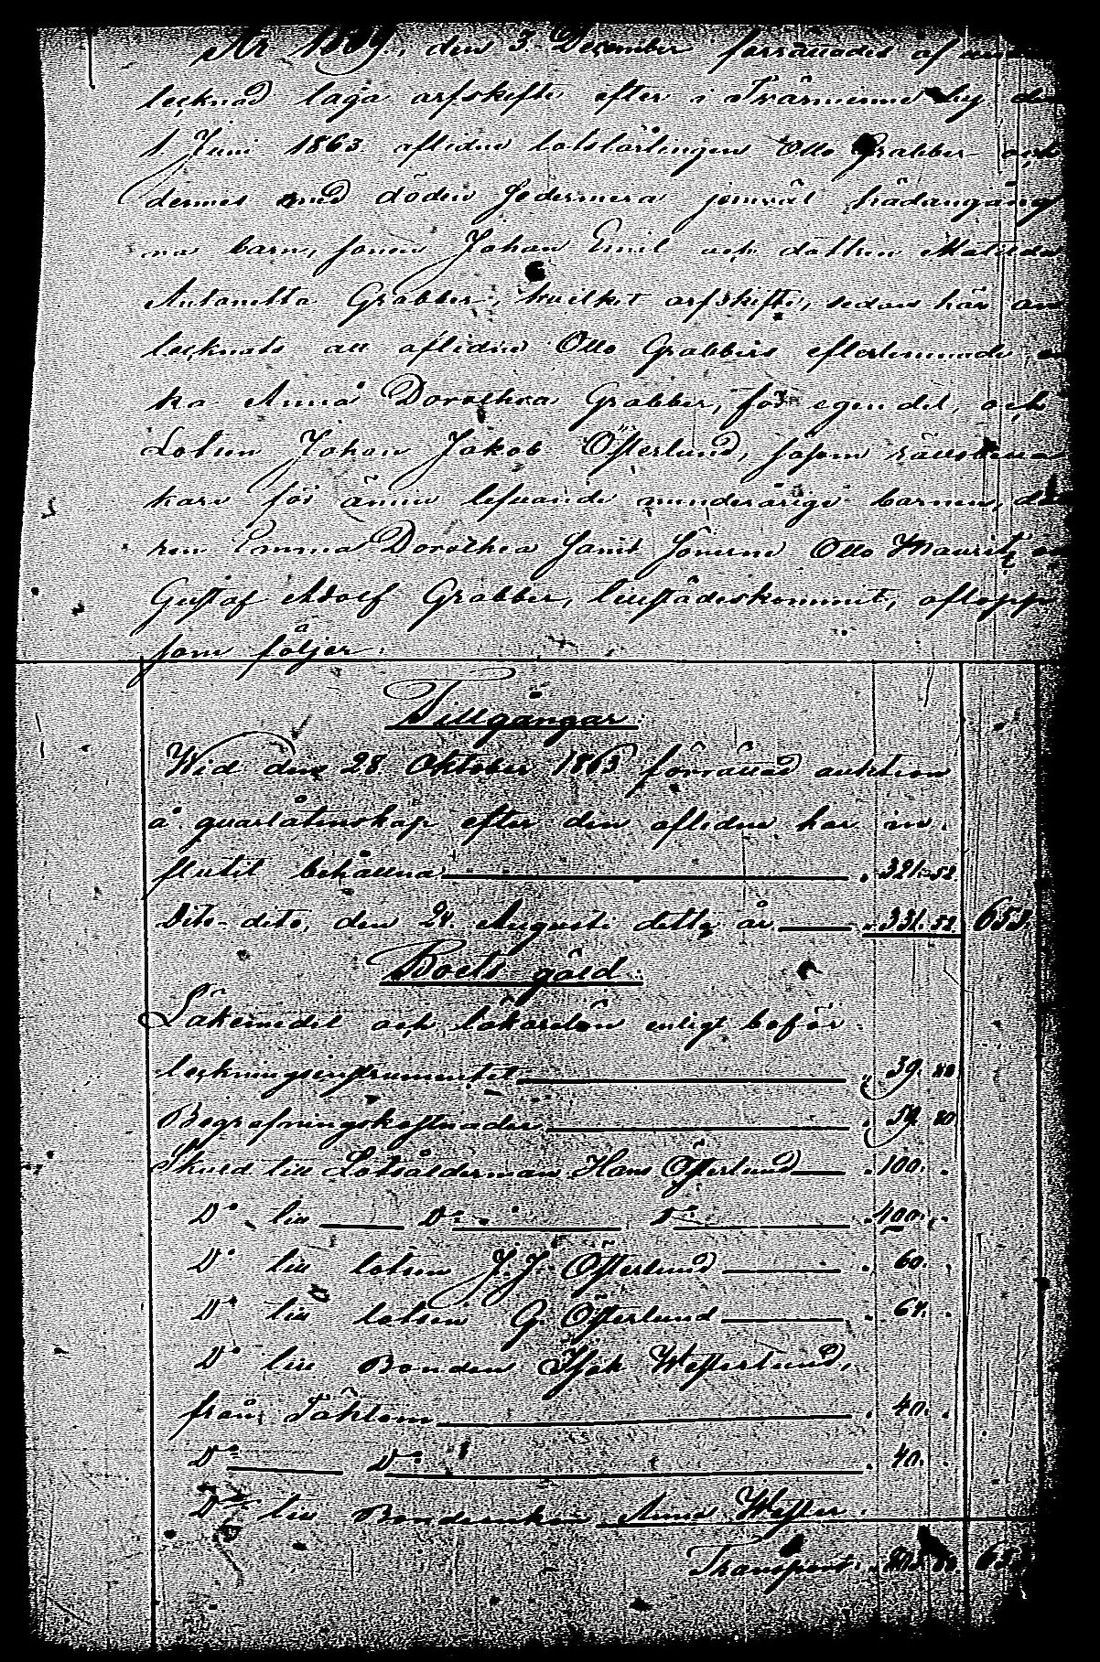 År 18 , den 3 December förrättades af
tecknad laga arfskifte efter i Tvärminne by den
1 Juni 1863 aflidne lotslärlingen Otto Grabber och
dermed med döden sedermera jemväl hädangång
na barn, sonen Johan Emil och dottren Matilda
Antonetta Grabber, hvilket arfskifte, sedan här an
tecknats att aflidne Otto Grabbers efterlemnade en
ka Anna Dorothea Grabber, för egen del, och
Lotsen Johan Jakob Österlund, såsom rätts
kare för ännu lefvande minderåriga barnen, 
ren Emma Dorothea samt sönerne Otto Mauritz o
Gustaf Adolf Grabber, tillstädeskommit, aflopp
som följer:
Tillgångar:
Wid den 28 Oktober 1863 förrättad auktion
å qvarlåtenskap efter den aflidne har in-
flutit behållna 321. 52
Dito dito, den 24 Augusti detta år 331. 52. 653
Boets gäld:
Läkemedel och läkarelön enligt beför-
teckningsinstrumentet 39. 80
Begrafningskostnader 80
Skuld till Lotsålderman Hans Österlund 100.
Do till Do Do 400.
Do till lotsen J. J. Österlund 60.
Do till lotsen G. Österlund 64.
Do till Bonden Isak Westerlund,
från Täktom 40.
Do Do 40.
Do till Bondeenkan Anna Wester-
Transport: